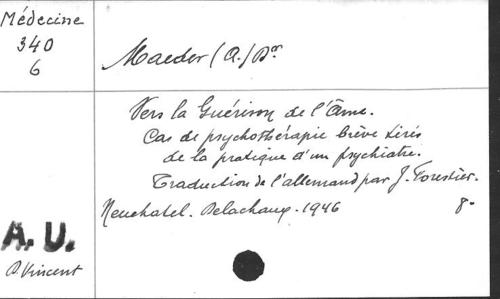 Médecine
340
6
Maeder (A.) Dr.
Vers la Guérison de l'Âme.
Cas de psychothérapie brève tirés
de la pratique d'un psychiatre.
Traduction de l'allemand par J. Forestier.
Neuchatel. Delachaux. 1946 8°
A.U.
P. Vincent